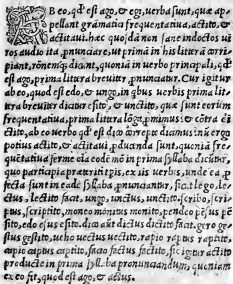 AB eo, qđ est ago, & egi, verba sunt, quæ appellant
grāmatici frequentatiua, actito, &
actitaui. hæc quosdā non sane indoctos uiros
audio ita, pnunciare, ut prima in his littera
piant, rōnemq; dicant, quonia in verbo principali, qđ
est ago, prima littera breuiter, pnunciatur. Cur igitur
ab eo, quod est edo, & ungo, in qbus verbis prima littera
breuiter dicitur esito, & unctito, quæ sunt eorum
frequentatiua, prima littera lōga, pmimus: & cōtra
ab eo verbo qđ est dico correpte dicimus
potius actito, & actitaui, pducenda sunt, quoniā
quētatiua ferme eōdē modo in prima syllaba dicūtur,
quo participia præteriti tpis, ex iis verbis, unde ea
fecta sunt in eadē syllaba, pnunciantur, sic. lego, lectus,
lectito facit. ungo, unctus, unctito. scribo, scriptus,
scriptito, moneo monitus monito, pendeo
esito, edo esus esito. dico aūt dictus dictito facit. gero gestus
gestito, ueho uectus uectito, rapio raptus raptito,
capio captus captito, facio factus factito, sic igitur actito
producte in prima syllaba pronunciandum, quoniam
ex eo fit, quod est ago, & actus.